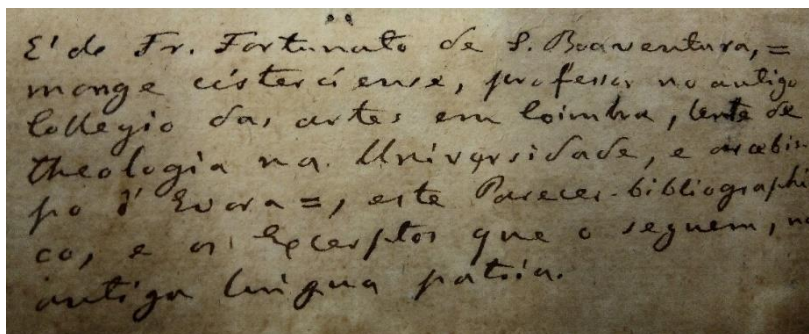 E' de Fr. Fortunato de S. Boaventura, =
monge cisterciense, professor no antigo
Collegio das artes em Coimbra, lente de
theologia na Universidade, e arcebis-
po d'Evora =, este Parecer-bibliographi
co, e os Excerptos que o seguem, na
antiga lingua patria.